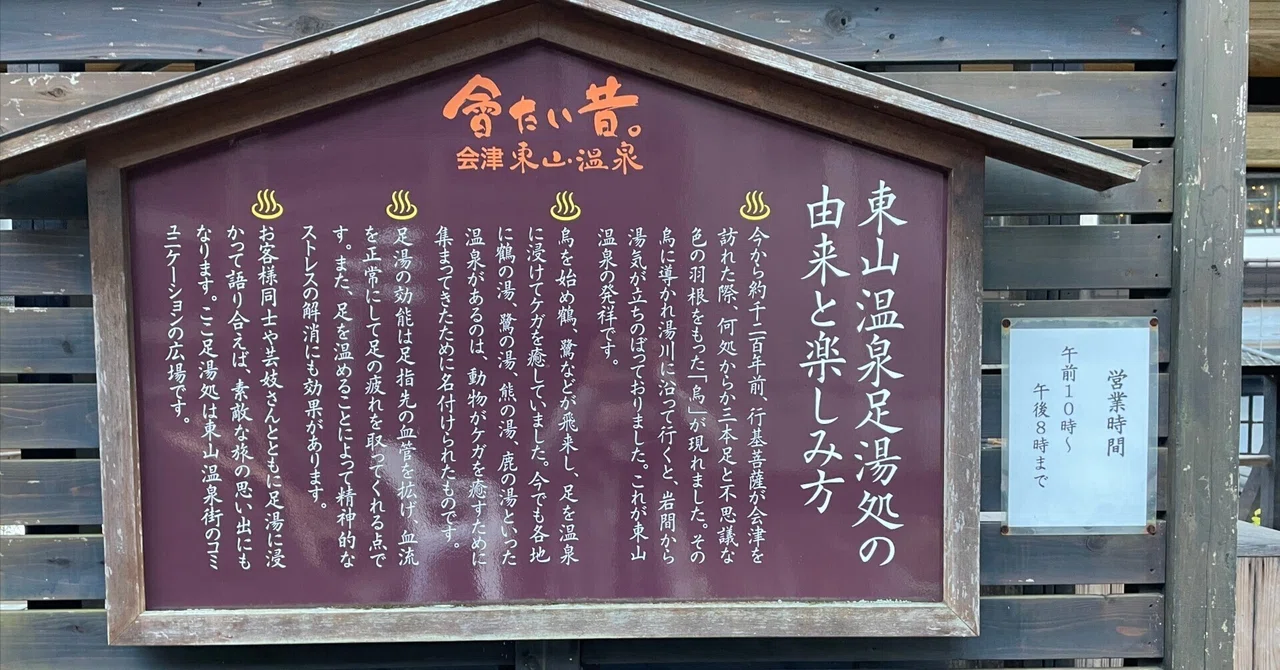 會たい昔。
会津東山温泉
東山温泉足湯処の
由来と楽しみ方
今から約千二百年前、行基菩薩が会津を
訪れた際、何処からか三本足と不思議な
色の羽根をもった「烏」が現れました。その
烏に導かれ湯川に沿って行くと、岩間から
湯気が立ちのぼっておりました。これが東山
温泉の発祥です。
烏を始め鶴、鷺などが飛来し、足を温泉
に浸けてケガを癒していました。今でも各地
に鶴の湯、鷺の湯、熊の湯、鹿の湯といった
温泉があるのは、動物がケガを癒すために
集まってきたために名付けられたものです。
足湯の効能は足指先の血管を拡げ、血流
を正常にして足の疲れを取ってくれる点で
す。また、足を温めることによって精神的な
ストレスの解消にも効果があります。
お客様同士や芸妓さんとともに足湯に浸
かって語り合えば、素敵な旅の思い出にも
なります。ここ足湯処は東山温泉街のコミ
ュニケーションの広場です。
営業時間
午前10時〜
午後8時まで